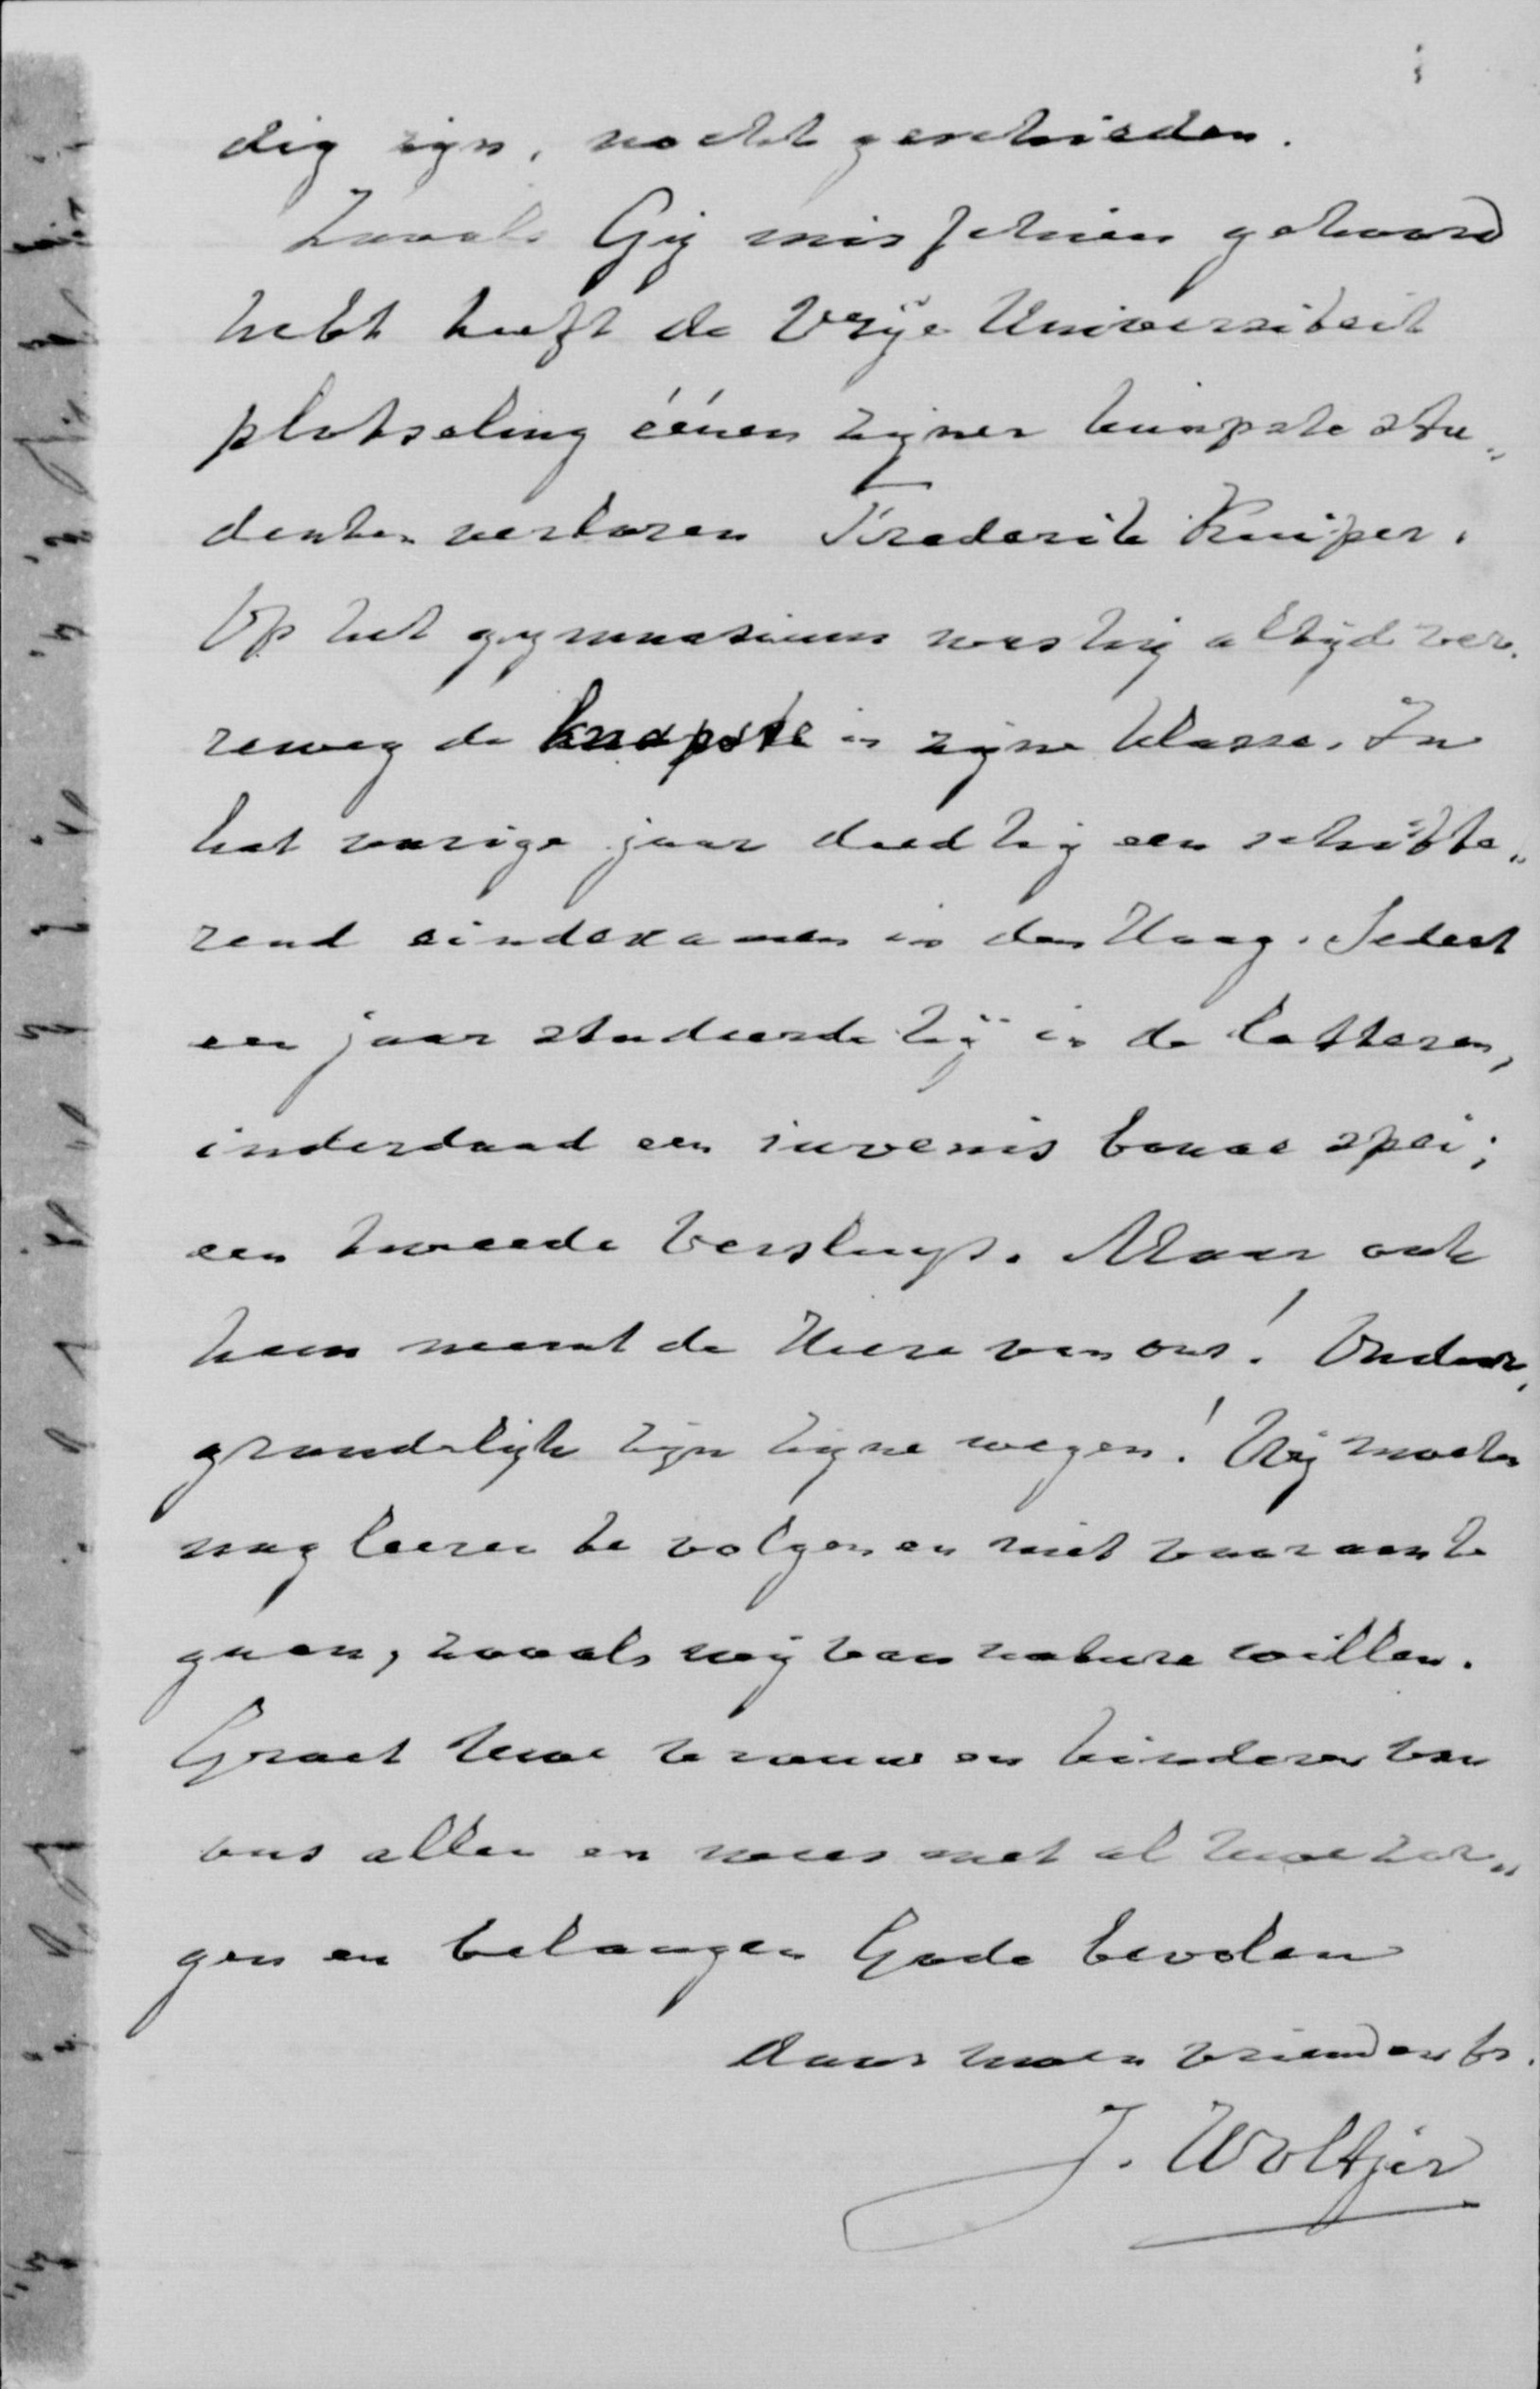 dig zijn, mocht geschieden.
Zooals Gij misschien gehoord
hebt heeft de Vrije Universiteit
plotseling éénen zijner knapste stu„
denten verloren Frederik Kuiper.
Op het gymnasium was hij altijd ver„
reweg de knapste in zijne klasse. In
het vorige jaar deed hij een schitte„
rend eindexamen in den Haag. Sedert
een jaar studeerde hij in de letteren,
inderdaad een iuvenis bonae spei;
een tweede Versluys. Maar ook
hem neemt de Heere van ons! Ondoor„
grondelijk zijn zijne wegen! Wij moeten
nog leeren te volgen en niet vooraan te
gaan, zooals wij van nature willen.
Groet Uwe vrouw en kinderen van
ons allen en wees met al Uwe zor„
gen en belangen Gode bevolen
door Uwen vriend en br.
J. Woltjer